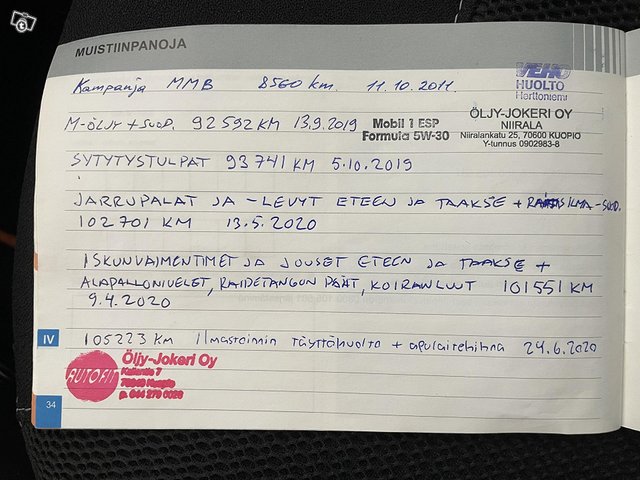 MUISTIINPANOJA
Kampanja MMB 8560 km. 11.10.2011.
VEHO
HUOLTO
Herttoniemi
M-ÖLJY + SUOD. 92592 KM 13.9.2019
Mobil 1 ESP
Formula 5W-30
ÖLJY-JOKERI OY
NIIRALA
Niiralankatu 25, 70600 KUOPIO
Y-tunnus 0902983-8
SYTYTYSTULPAT 93741 KM 5.10.2019
JARRUPALAT JA -LEVYT ETEEN JA TAAKSE + RAITISILMA-SUOD.
102701 KM 13.5.2020
ISKUNVAIMENTIMET JA JOUSET ETEEN JA TAAKSE +
ALAPALLONIVELET, RAIDETANGON PÄÄT, KOIRANLUUT 101551 KM
9.4.2020
IV
105223 KM Ilmastoinnin täyttöhuolto + apulaitehihna 24.6.2020
AUTOFIT
Öljy-Jokeri Oy
34